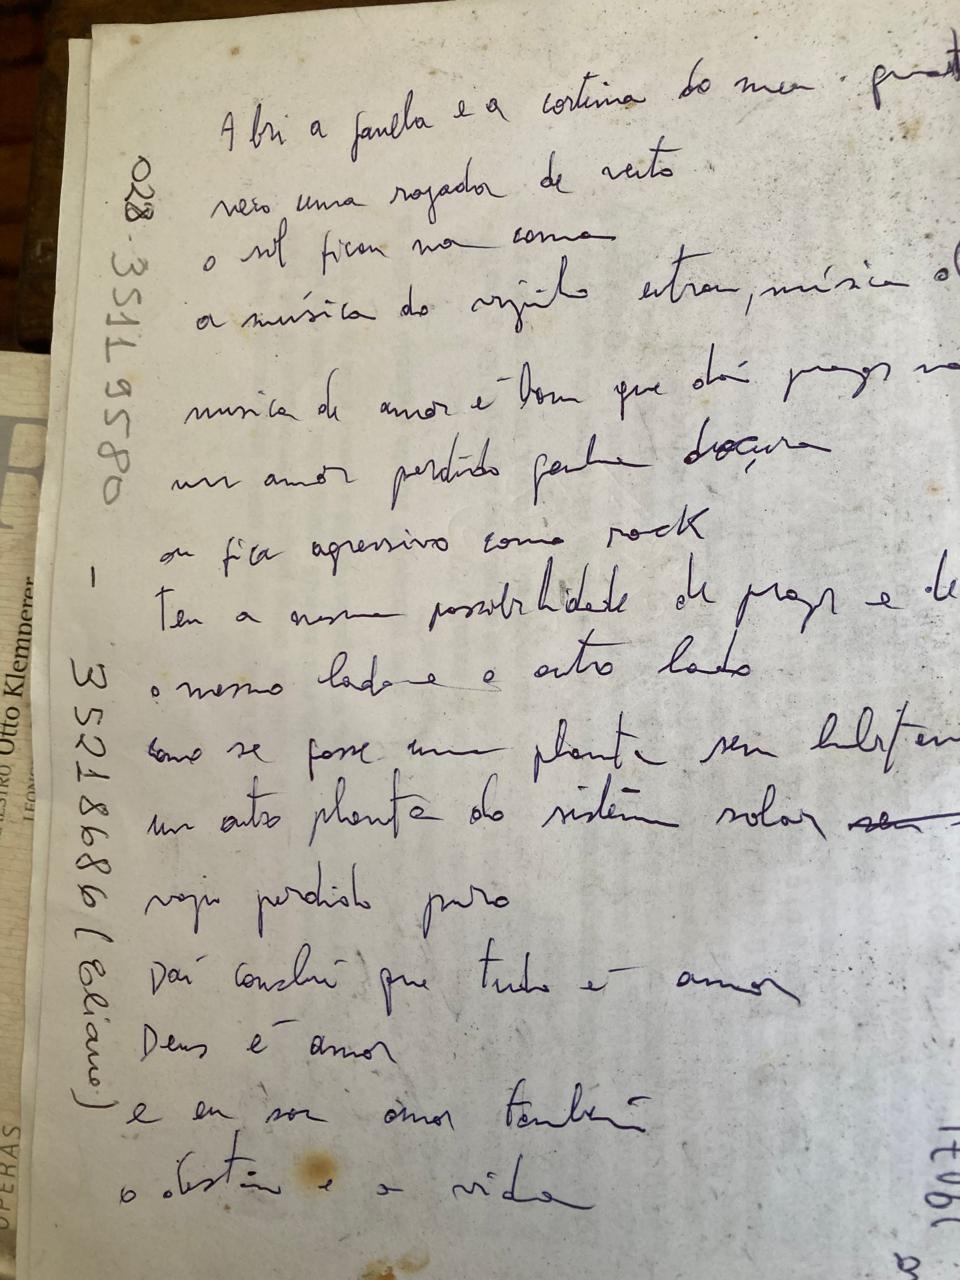 Abri a janela e a cortina do meu
veio uma rajada de vento
o sol ficou na cama
a música do vizinho entrou, música
musica de amor é bom que dá
um amor perdido ganha doçura
ou fica agressivo como rock
Tem a mesma possibilidade de e de
o mesmo lado e o outro lado
como se fosse um planeta sem
um outro planeta do sistema solar
perdido puro
Daí conclui que tudo é amor
Deus é amor
e eu sou amor também
o destino e a vida
028-35119580 - 35218686 (Eliane)
Otto Klemperer
OPERAS